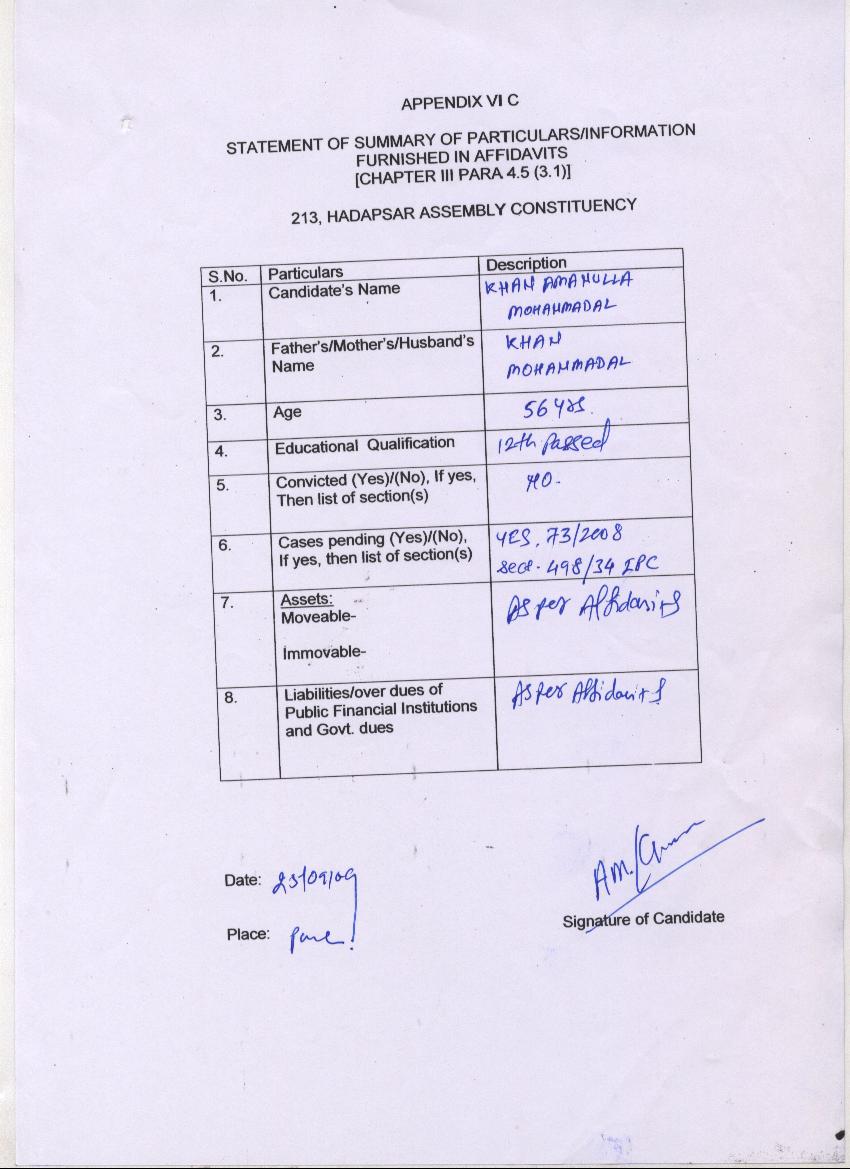 APPENDIX VI C
STATEMENT OF SUMMARY OF PARTICULARS/INFORMATION
FURNISHED IN AFFIDAVITS
[CHAPTER III PARA 4.5 (3.1)]
213, HADAPSAR ASSEMBLY CONSTITUENCY
S.No. Particulars Description
1. Candidate's Name KHAN AMANULLA
MOHAMMADAL
2. Father's/Mother's/Husband's KHAN
Name MOHAMMADAL
3. Age 56 yrs.
4. Educational Qualification 12th passed
5. Convicted (Yes)/(No), If yes, NO.
Then list of section(s)
6. Cases pending (Yes)/(No), YES, 73/2008
If yes, then list of section(s) sec. 498/34 IPC
7. Assets: As per Affidavits
Moveable-
Immovable-
8. Liabilities/over dues of As per Affidavits
Public Financial Institutions
and Govt. dues
Date: 23/09/09
Place: Pune
Signature of Candidate